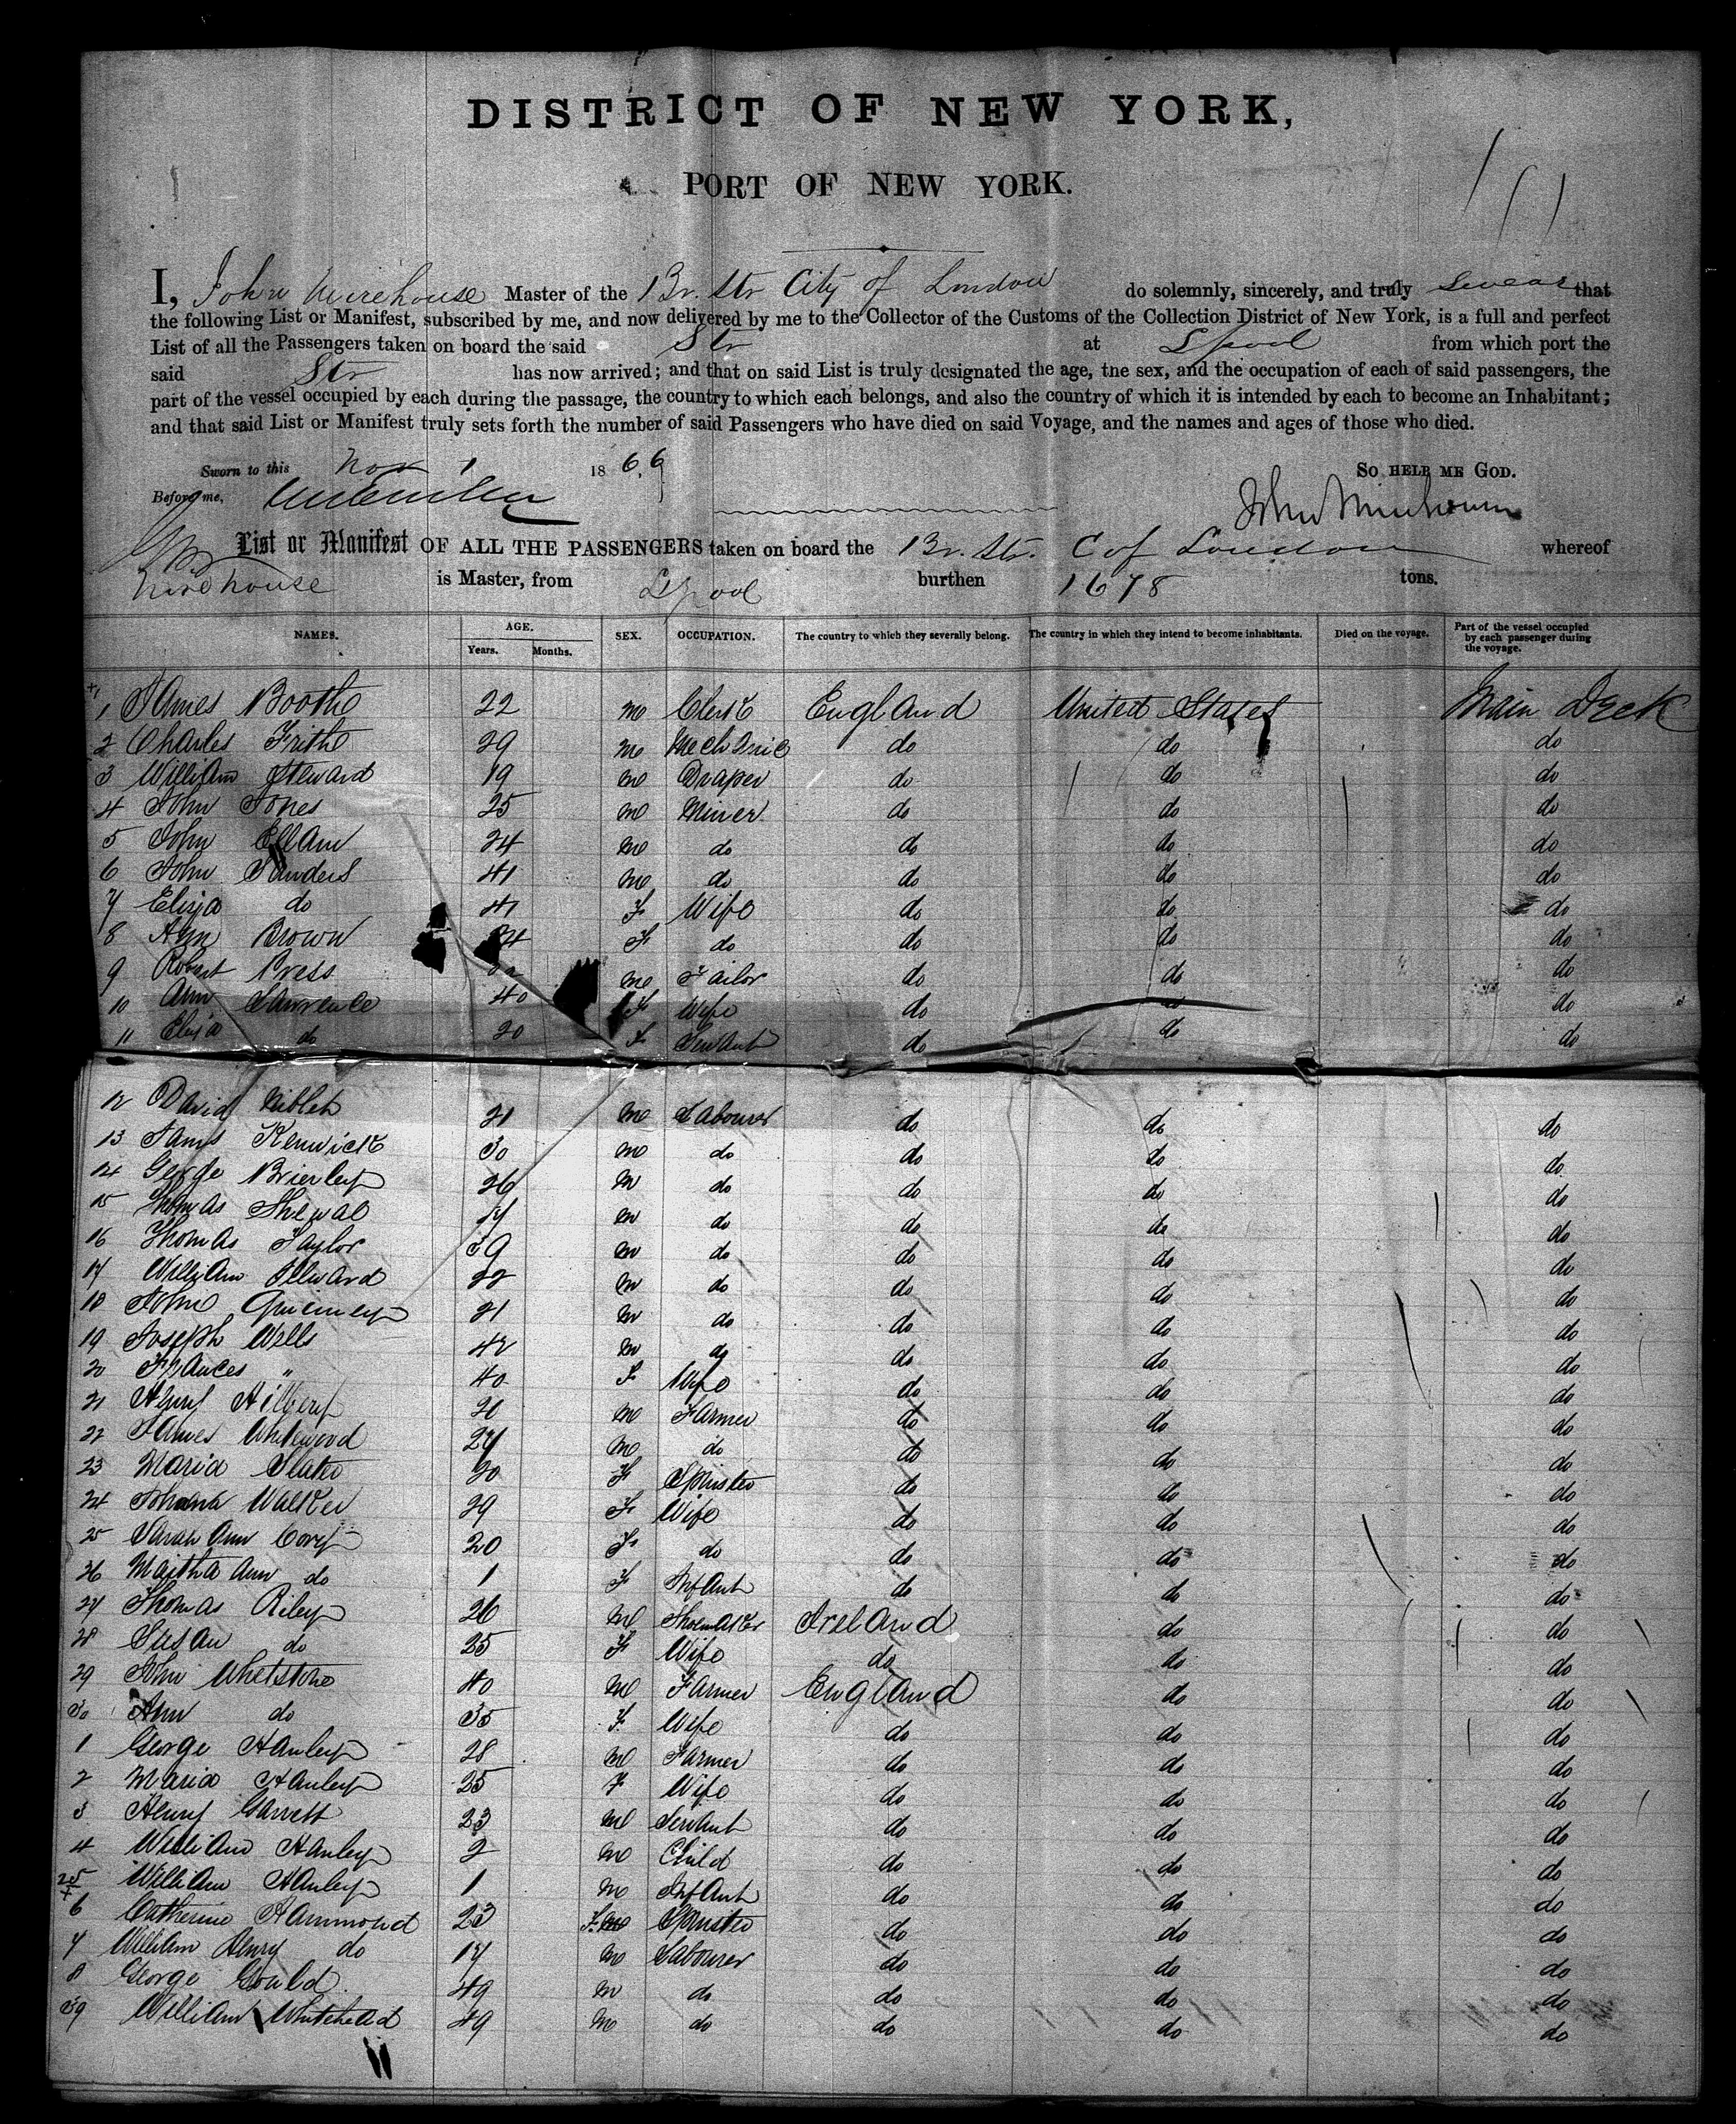 DISTRICT OF NEW YORK,
PORT OF NEW YORK.
I, John Mirehouse Master of the Br. Str City of London do solemnly, sincerely, and truly swear that
the following List or Manifest, subscribed by me, and now delivered by me to the Collector of the Customs of the Collection District of New York, is a full and perfect
List of all the Passengers taken on board the said Str at Lpool from which port the
said Str has now arrived; and that on said List is truly designated the age, the sex, and the occupation of each of said passengers, the
part of the vessel occupied by each during the passage, the country to which each belongs, and also the country of which it is intended by each to become an Inhabitant;
and that said List or Manifest truly sets forth the number of said Passengers who have died on said Voyage, and the names and ages of those who died.
Sworn to this Nov 1 1866 So help me God.
Before me, John Mirehouse
List or Manifest OF ALL THE PASSENGERS taken on board the Br. Str. C of London whereof
Mirehouse is Master, from Lpool burthen 1678 tons.
NAMES. AGE. Years. Months. SEX. OCCUPATION. The country to which they severally belong. The country in which they intend to become inhabitants. Died on the voyage. Part of the vessel occupied by each passenger during the voyage.
1 James Booth 22 m Clerk England United States Main Deck
2 Charles Frith 29 m Mechanic do do do
3 William Steward 19 m Draper do do do
4 John Jones 25 m Miner do do do
5 John Ellam 24 m do do do do
6 John Sanders 41 m do do do do
7 Eliza do 41 F Wife do do do
8 Ann Brown F do do do do
9 Robert Press m Tailor do do do
10 Ann Lawrence 40 F Wife do do do
11 Eliza do 20 F Servant do do do
12 David Niblet 21 m Labourer do do do
13 James Kenwick 30 m do do do do
14 George Brierley 26 m do do do do
15 Thomas m do do do do
16 Thomas Taylor 39 m do do do do
17 William 22 m do do do do
18 John 21 m do do do do
19 Joseph Wells 42 m do do do do
20 Frances " 40 F Wife do do do
21 Henry Hilbery 20 m Farmer do do do
22 James Whitewood 27 m do do do do
23 Maria Slater 20 F Spinster do do do
24 Johana Walker 29 F Wife do do do
25 Sarah Ann Cory 20 F do do do do
26 Martha Ann do 1 F Infant do do do
27 Thomas Riley 26 m Shoemaker Ireland do do
28 Susan do 25 F Wife do do do
29 John Whetstone 40 m Farmer England do do
30 Ann do 35 F Wife do do do
1 George Hanley 28 m Farmer do do do
2 Maria Hanley 25 F Wife do do do
3 Henry Garrett 23 m Servant do do do
4 William Hanley 2 m Child do do do
5 William Hanley 1 m Infant do do do
6 Catherine Hammond 23 F Spinster do do do
7 William Henry do 17 m Labourer do do do
8 George Gould 49 m do do do do
39 William Whitehead 49 m do do do do